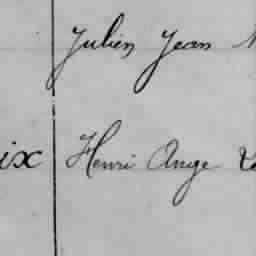 Julien Jean
ix Henri Ange